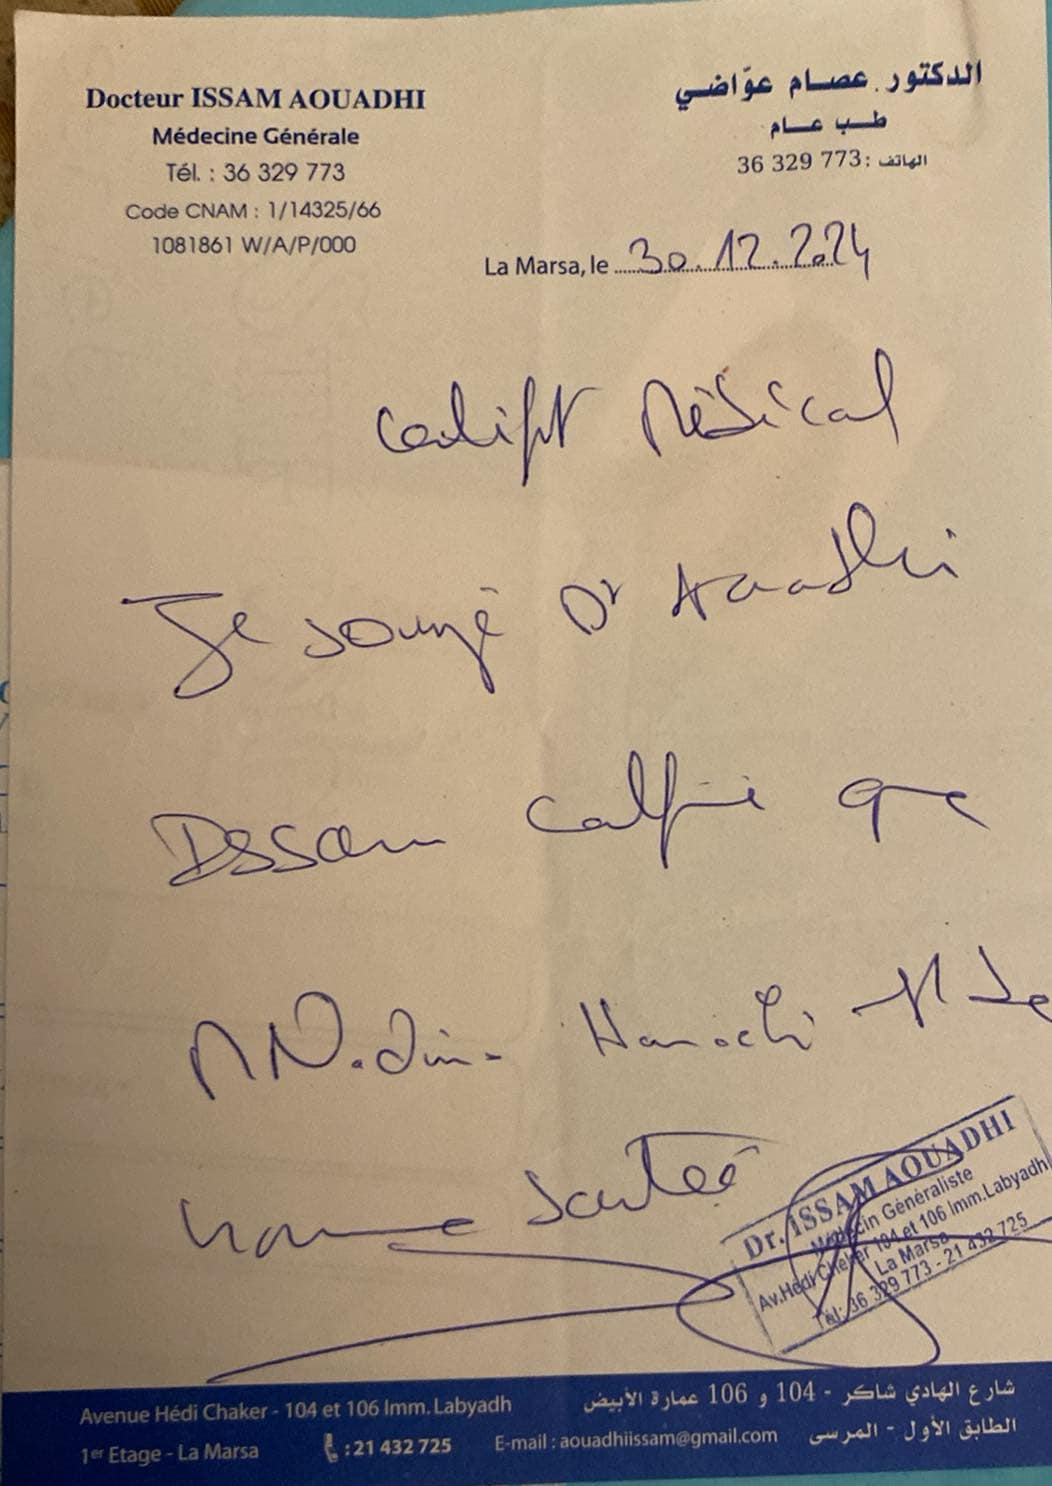 Docteur ISSAM AOUADHI
Médecine Générale
Tél. : 36 329 773
Code CNAM : 1/14325/66
1081861 W/A/P/000
الدكتور عصام عوّاضي
طب عام
الهاتف : 773 329 36
La Marsa, le 30.12.2024
Médical
Je Dr Aouadhi
Issam que
Hanachi
Santé
Dr. ISSAM AOUADHI
Médecin Généraliste
Av.Hédi Cheker 104 et 106 Imm.Labyadh
La Marsa
Tél: 36 329 773 - 21 432 725
Avenue Hédi Chaker - 104 et 106 Imm. Labyadh
1er Etage - La Marsa
: 21 432 725
E-mail : aouadhiissam@gmail.com
شارع الهادي شاكر - 104 و 106 عمارة الأبيض
الطابق الأول - المرسى